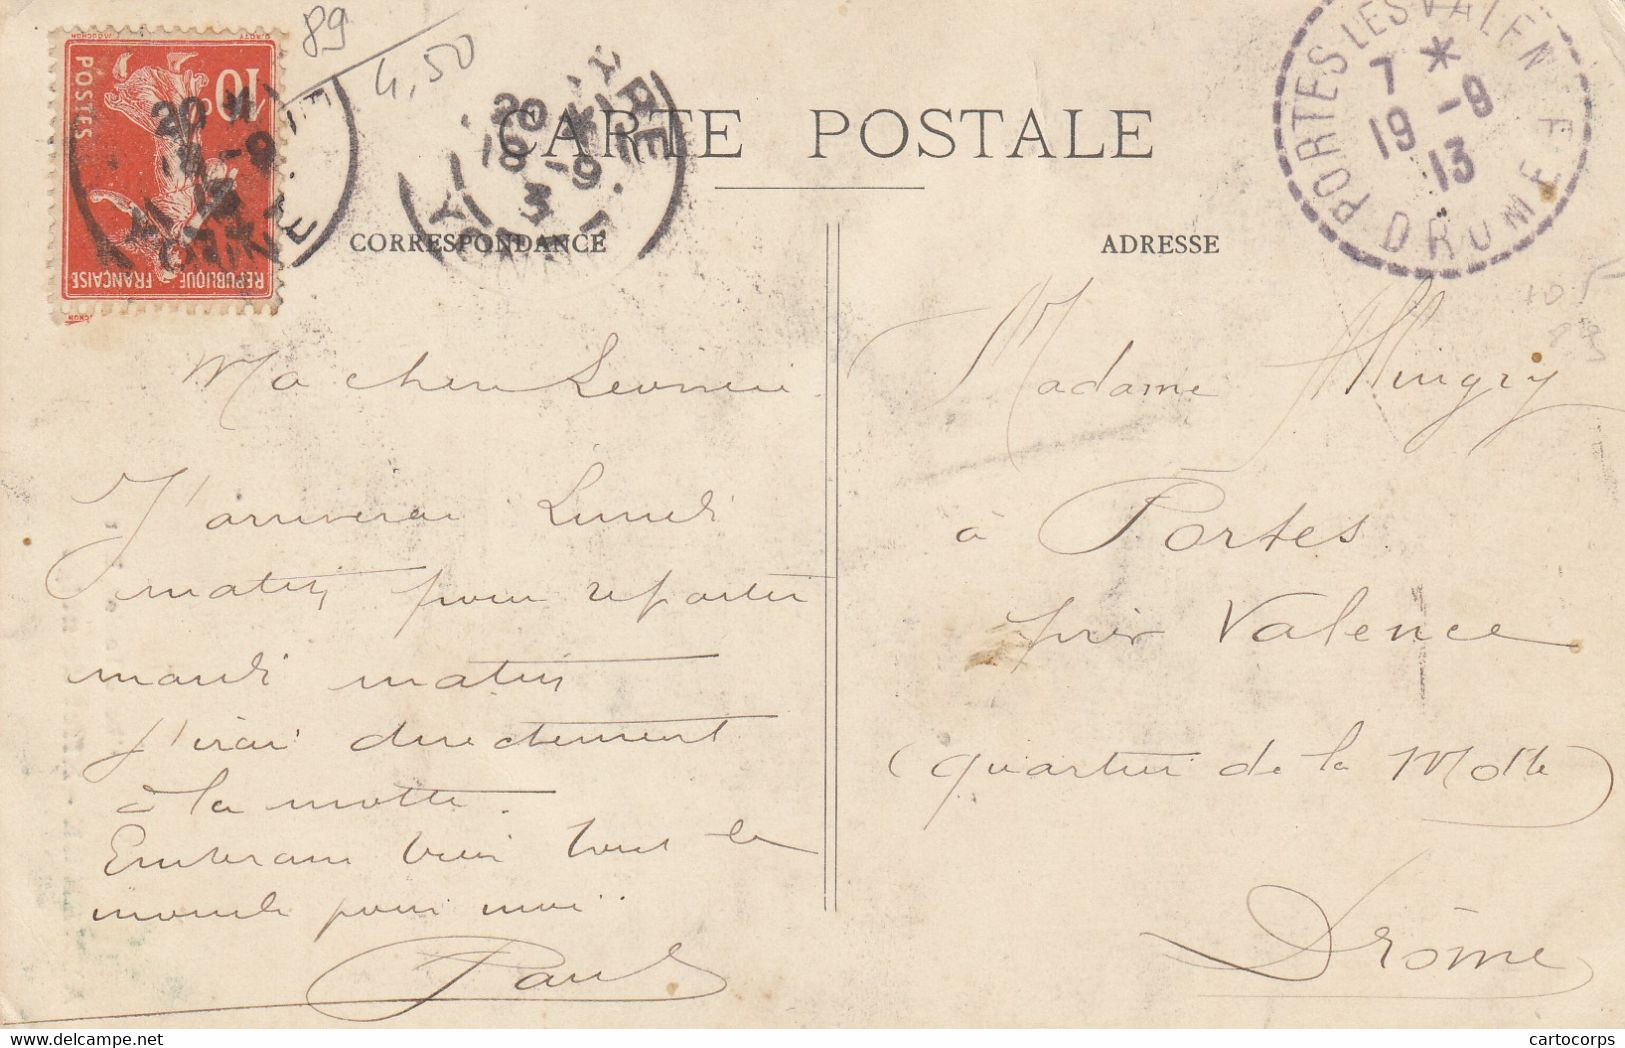 89
4,50
CARTE POSTALE
POSTES
10c
REPUBLIQUE FRANÇAISE
20 *
18 -9
13
YONNE
20 *
18 -9
13
YONNE
PORTES LES VALENCE
7 *
19 -9
13
DROME
CORRESPONDANCE
ADRESSE
105
89
Ma chere Leonnie
J'arriverai Lundi
matin pour repartir
mardi matin
j'irai directement
à la motte.
Embrasse bien tout le
monde pour moi.
Paul
Madame Mingry
à Portes
près Valence
(quartier de la Motte)
Drôme
cartocorps